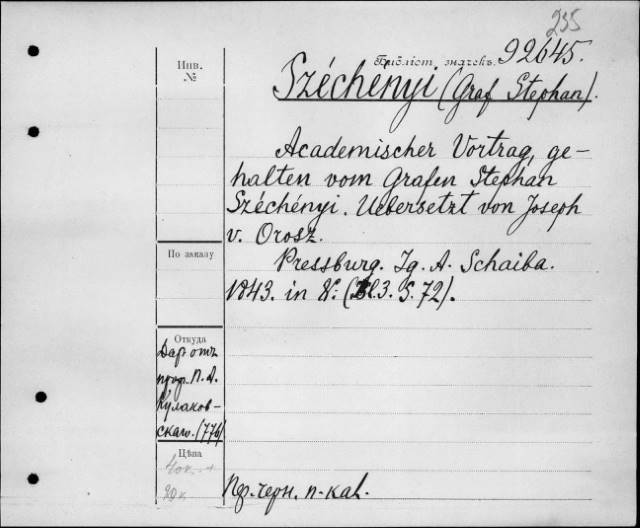 235
Инв.
№
Библіот. значекъ.
92645.
Széchényi (Graf Stephan).
Academischer Vortrag, ge-
halten vom Grafen Stephan
Széchényi. Uebersetzt von Joseph
v. Orosz.
Pressburg. Ig. A. Schaiba.
1843. in 8º. (Bl. 3. S. 72).
По заказу
Откуда
Даръ отъ
проф. П. А.
Кулаков-
скаго. (776)
Цѣна
40к.
20к.
Пр. черн. п-кал.